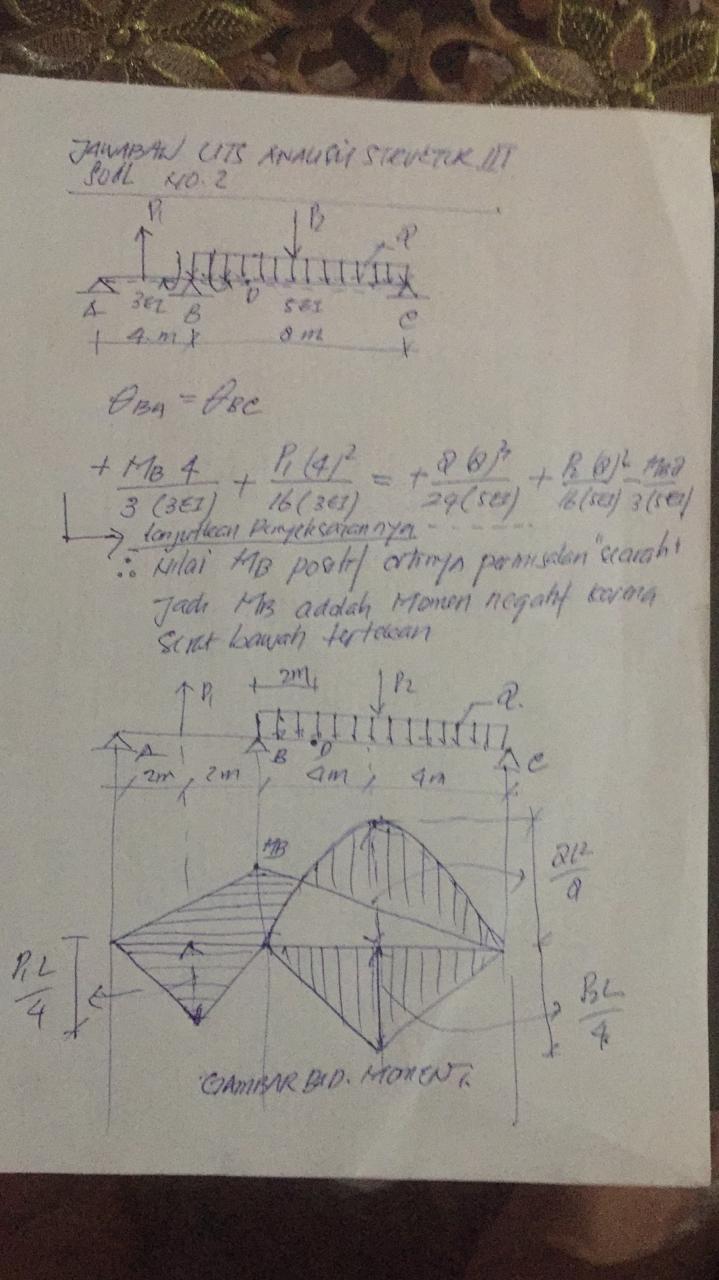 JAWABAN UTS ANALISIS STRUKTUR III
SOAL NO. 2
P1 P2 Q
A 3EI B D 5EI C
4 m 8 m
θBA = θBC
+ MB 4 / 3 (3EI) + P1 (4)² / 16 (3EI) = + Q (8)³ / 24 (5EI) + P2 (8)² / 16 (5EI) - MB 8 / 3 (5EI)
Lanjutkan Penyelesaiannya
∴ Nilai MB positif artinya permisalan "searah"
Jadi MB adalah Momen negatif karena
Serat bawah tertekan
2m
P1 P2 Q
A B D C
2m 2m 4m 4m
MB
QL²/8
P1L/4
P2L/4
GAMBAR BID. MOMENT.